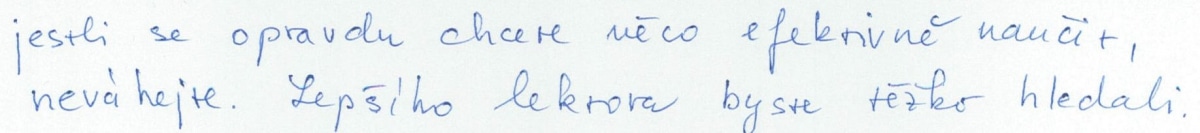 jestli se opravdu chcete něco efektivně naučit,
neváhejte. Lepšího lektora byste těžko hledali.